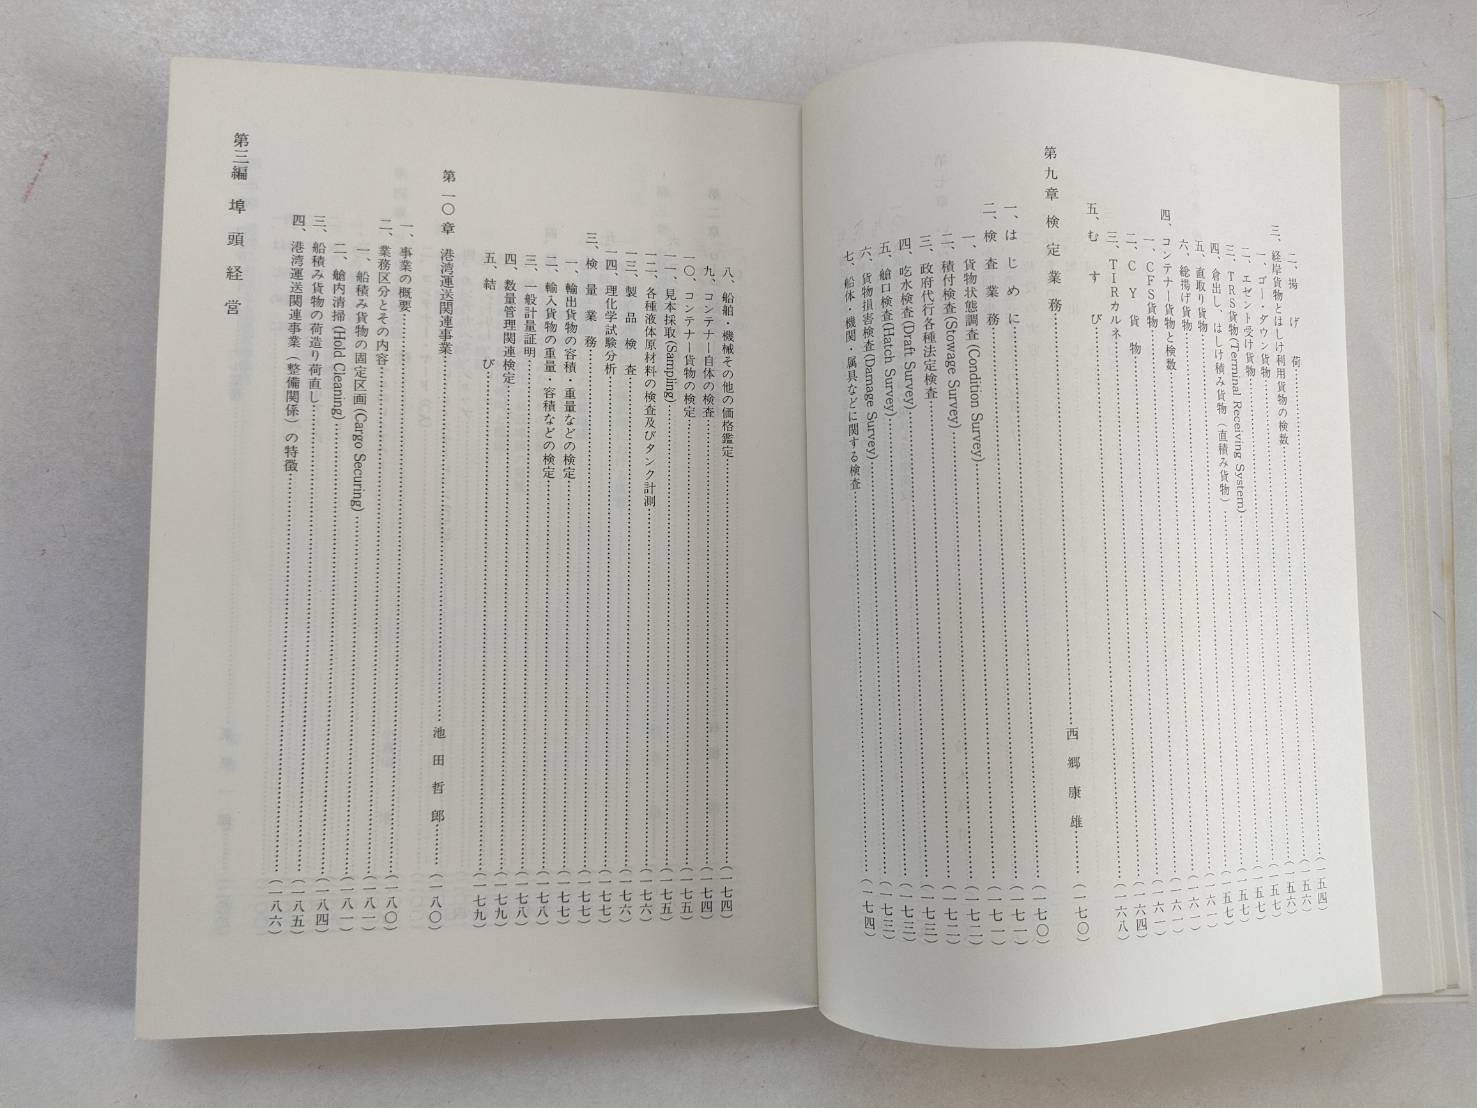 二、揚げ荷……(一五四)
三、経岸貨物とはしけ利用貨物の検数……(一五六)
一、ゴー・ダウン貨物……(一五六)
二、エゼント受け貨物……(一五七)
三、TRS貨物(Terminal Receiving System)……(一五七)
四、倉出し、はしけ積み貨物(直積み貨物)……(一五七)
五、直取り貨物……(一五七)
六、総揚げ貨物……(一六一)
四、コンテナー貨物と検数……(一六一)
一、CFS貨物……(一六一)
二、CY貨物……(一六一)
三、TIRカルネ……(一六四)
五、むすび……(一六八)
第九章 検定業務……西郷康雄……(一七〇)
一、はじめに……(一七〇)
二、検査業務……(一七一)
一、貨物状態調査(Condition Survey)……(一七一)
二、積付検査(Stowage Survey)……(一七二)
三、政府代行各種法定検査……(一七二)
四、吃水検査(Draft Survey)……(一七三)
五、艙口検査(Hatch Survey)……(一七三)
六、貨物損害検査(Damage Survey)……(一七三)
七、船体・機関・属具などに関する検査……(一七四)
八、船舶・機械その他の価格鑑定……(一七四)
九、コンテナー自体の検査……(一七四)
一〇、コンテナー貨物の検定……(一七五)
一一、見本採取(Sampling)……(一七五)
一二、各種液体原材料の検査及びタンク計測……(一七六)
一三、製品検査……(一七六)
一四、理化学試験分析……(一七七)
三、検量業務……(一七七)
一、輸出貨物の容積・重量などの検定……(一七七)
二、輸入貨物の重量・容積などの検定……(一七八)
三、一般計量証明……(一七八)
四、数量管理関連検定……(一七九)
五、結び……(一七九)
第一〇章 港湾運送関連事業……池田哲郎……(一八〇)
一、事業の概要……(一八〇)
二、業務区分とその内容……(一八一)
一、船積み貨物の固定区画(Cargo Securing)……(一八一)
二、艙内清掃(Hold Cleaning)……(一八四)
三、船積み貨物の荷造り荷直し……(一八五)
四、港湾運送関連事業(整備関係)の特徴……(一八六)
第三編 埠頭経営